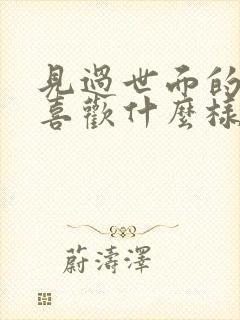 見過世面的
喜歡什麼樣
蔚濤澤